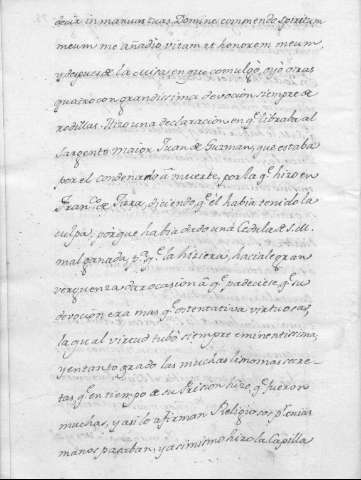 decir in manum tuas Domine commendo spiritum
meum me añadio vitam et honorem meum,
y despues de la missa, en que comulgó, oyó otras
quatro con grandissima devocion siempre de
rodillas. Hizo una declaracion en q.e libraba al
Sargento Maior Juan de Guzman, que estaba
por el condenado à muerte, por la q.e hizo en
Fran.co de Jara, diciendo q.e el habia tenido la
culpa, porque habia dado una Cedula de S. M.
mal ganada, p.a q.e la hiziera, hacia le gran
verguenza dar ocasion â q.e padeciese, q.e su
devocion era mas q.e ostentativa virtuosa,
la qual virtud tubo siempre eminentissima,
y en tanto grado las muchas limosnas secre-
tas q.e en tiempo de su Prision hizo, q.e fueron
muchas, y asi lo afirman Religiosos p.r cuias
manos pasaban, y asimismo hizo la Capilla